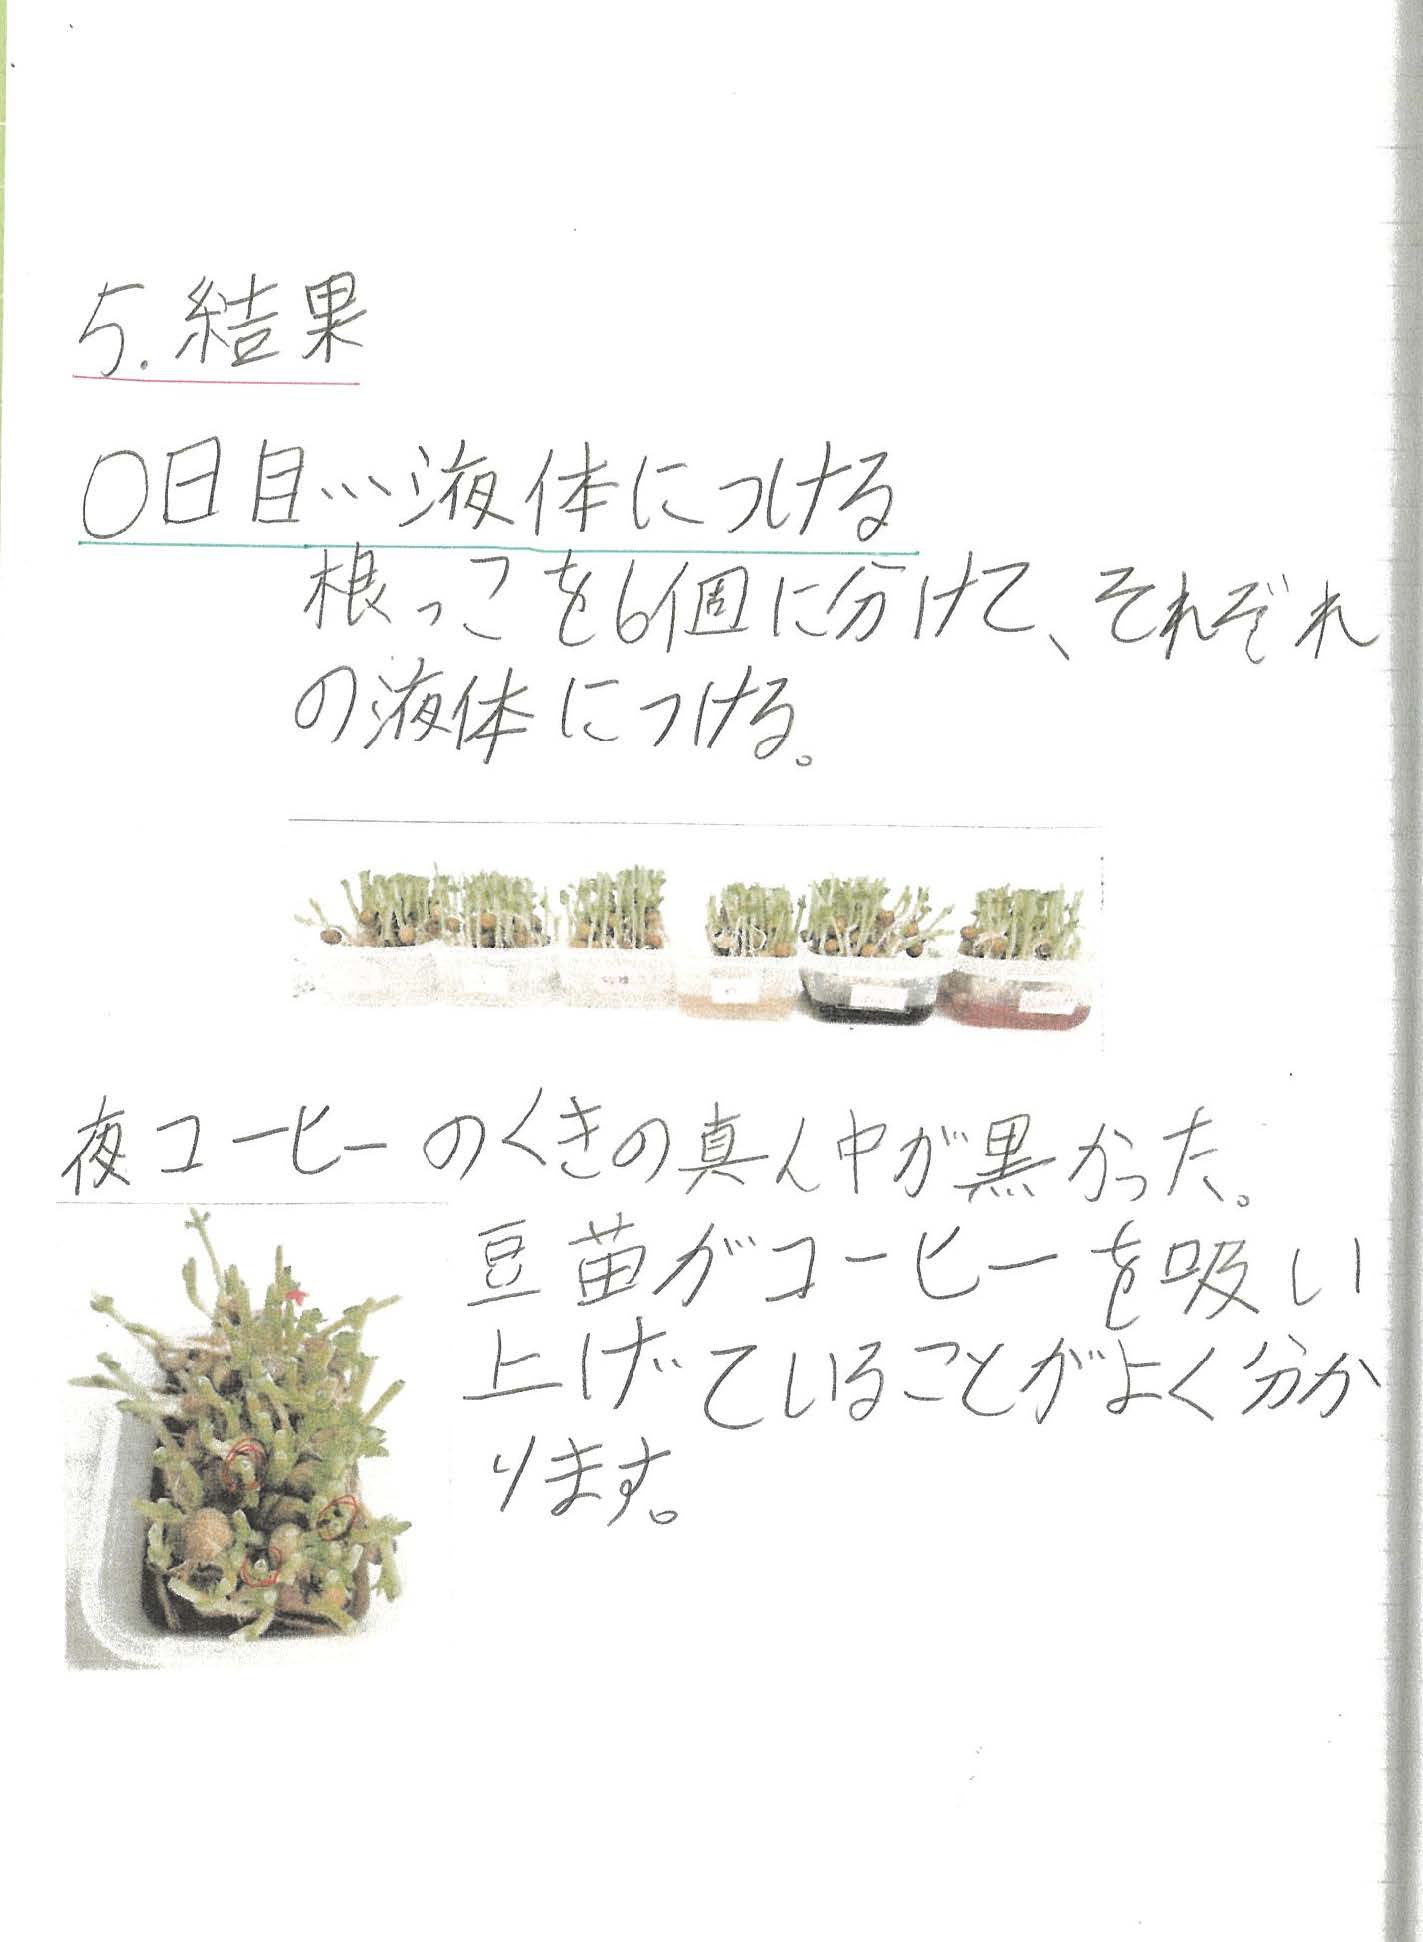 5.結果
0日目…液体につける
根っこを6個に分けて、それぞれ
の液体につける。
夜コーヒーのくきの真ん中が黒かった。
豆苗がコーヒーを吸い
上げていることがよく分か
ります。